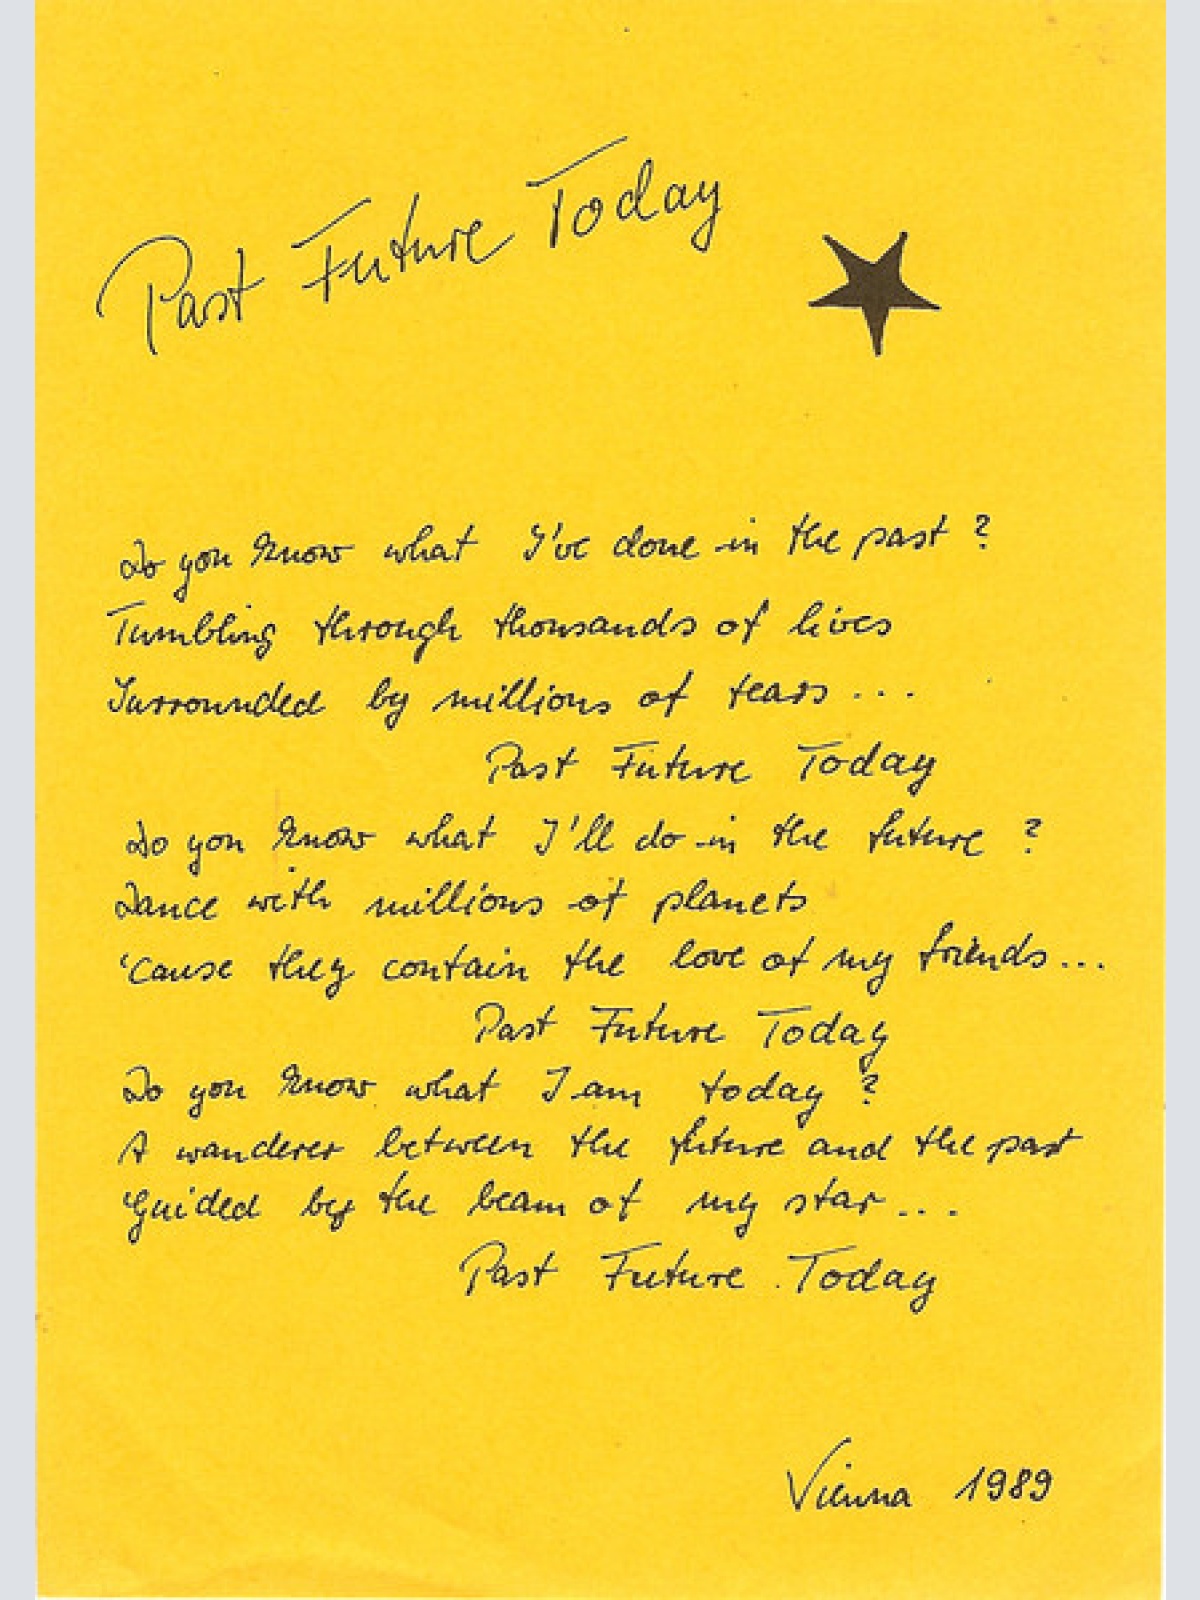 Past Future Today
Do you know what I've done in the past ?
Tumbling through thousands of lives
Surrounded by millions of tears ...
Past Future Today
Do you know what I'll do in the future ?
Dance with millions of planets
'cause they contain the love of my friends ...
Past Future Today
Do you know what I am today ?
A wanderer between the future and the past
Guided by the beam of my star ...
Past Future Today
Vienna 1989